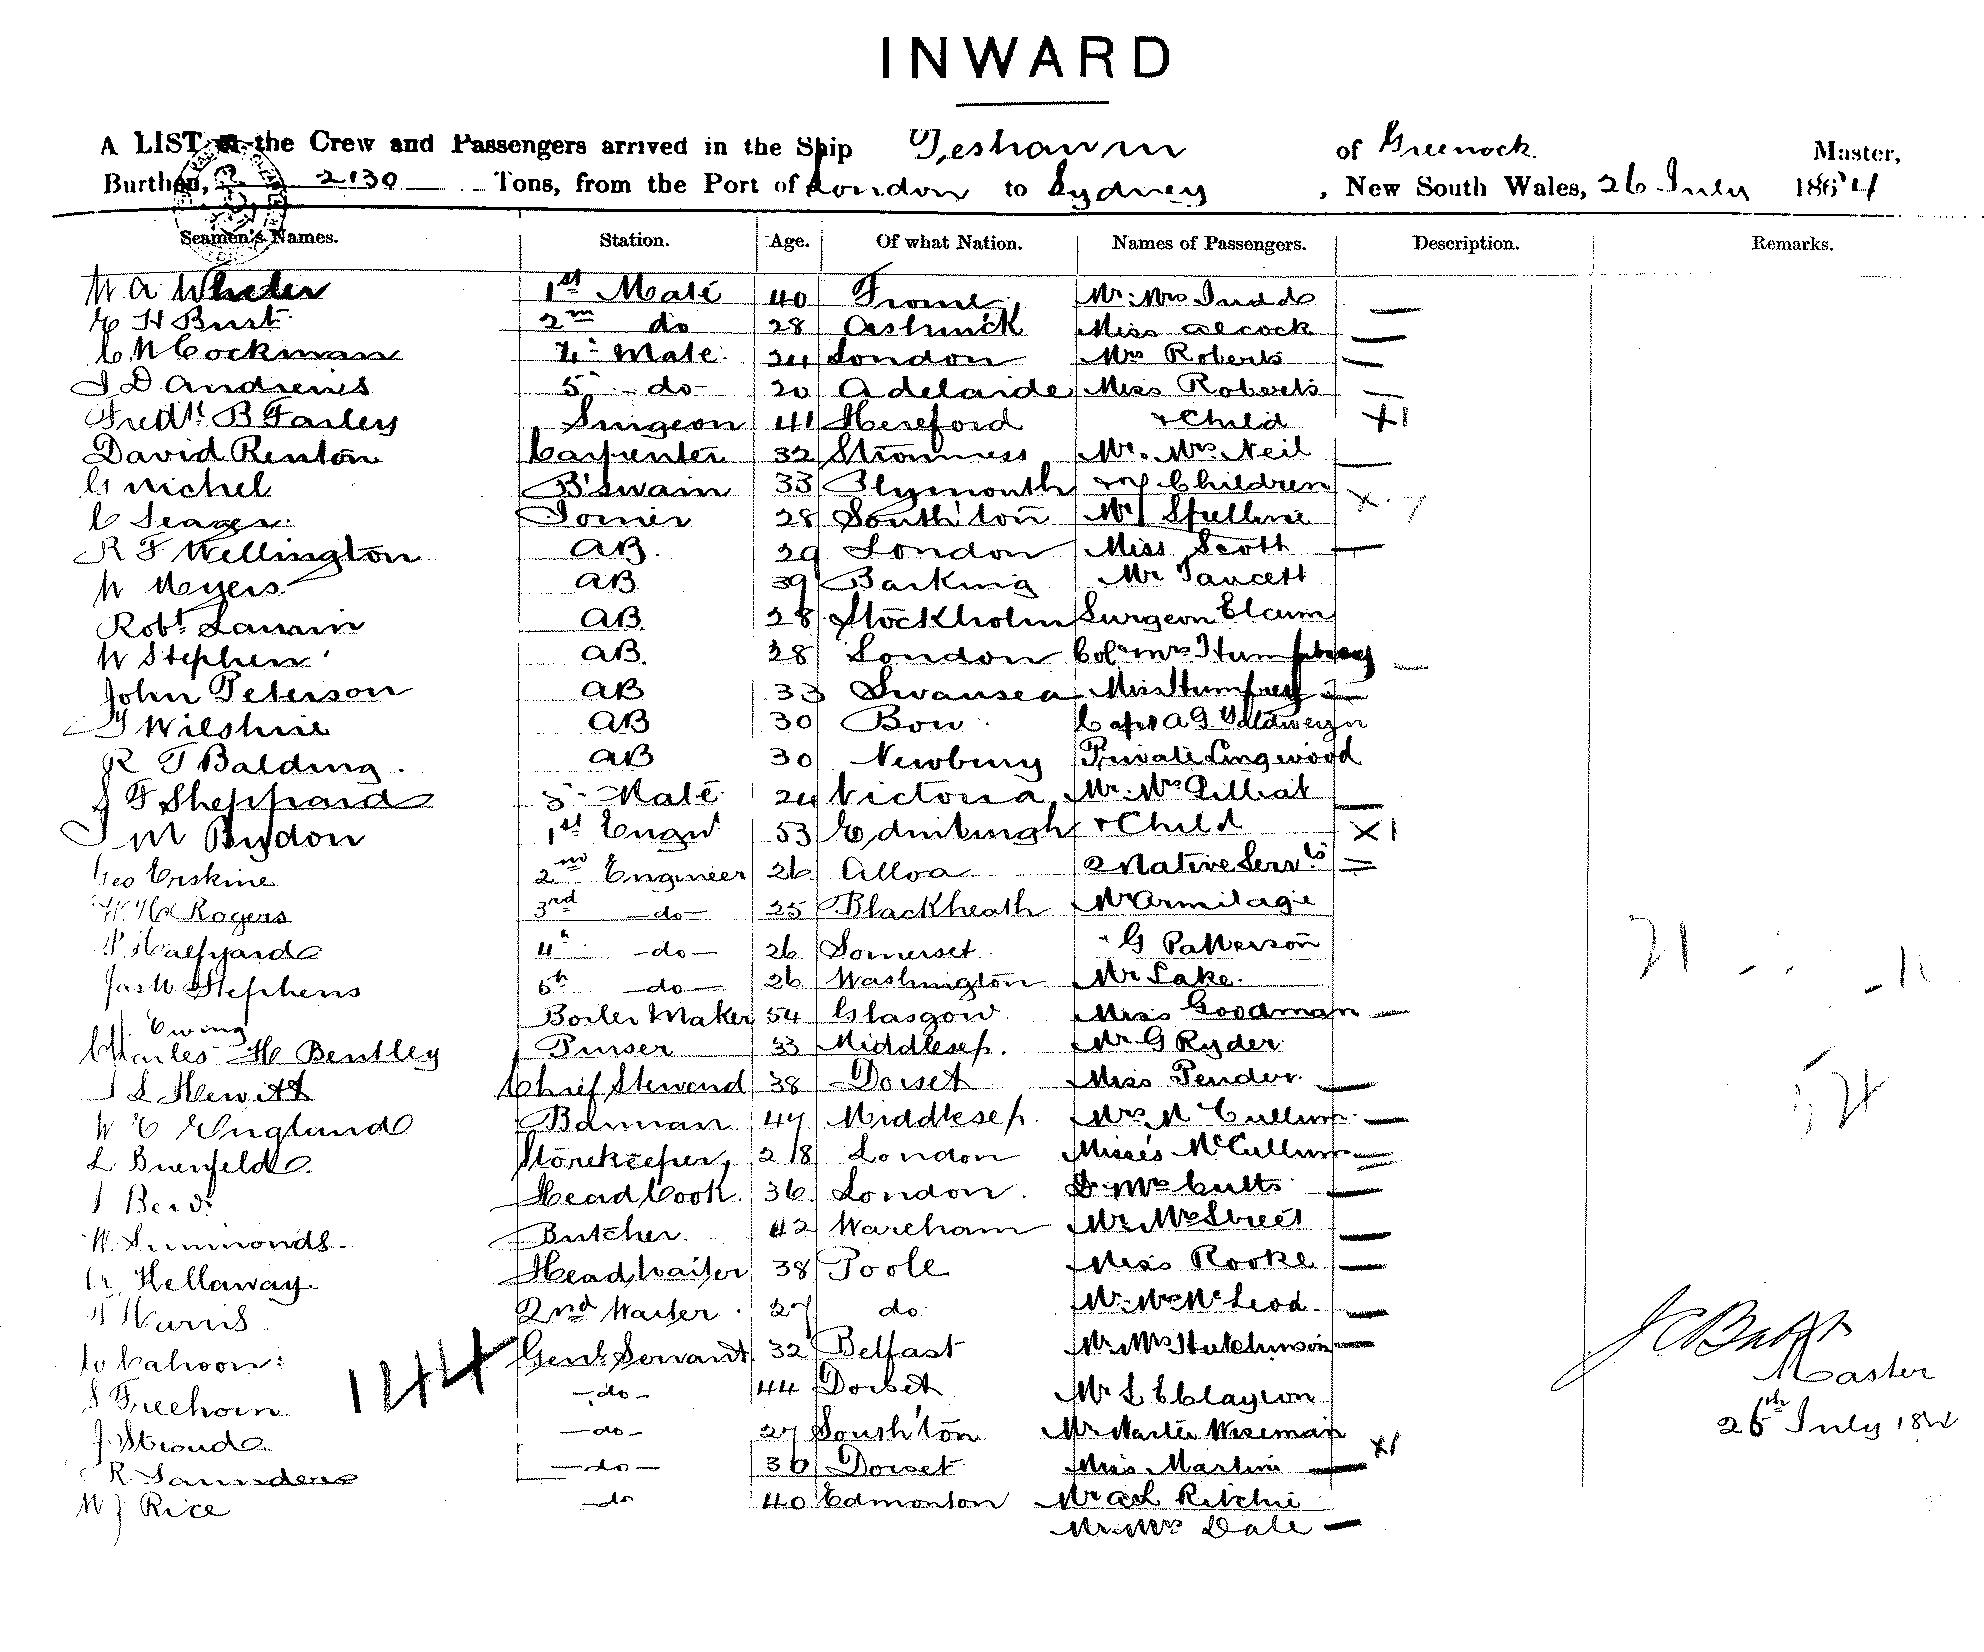 INWARD
A LIST of the Crew and Passengers arrived in the Ship Peshawur of Greenock Master,
Burthen, 2130 Tons, from the Port of London to Sydney, New South Wales, 26 July 1884
Seamen's Names. Station. Age. Of what Nation. Names of Passengers. Description. Remarks.
W A Wheler 1st Mate 40 Frome Mr. Mrs Judd —
E H Burt 2nd do 28 Miss Alcock —
C N Cockman 4th Mate 24 London Mrs Roberts —
J D Andrews 5 -do- 20 Adelaide Miss Roberts —
Fredk. B Farley Surgeon 41 Hereford & Child X1
David Renton Carpenter 32 Stromness Mr. Mrs Neil —
G Michel B'swain 33 Plymouth Children X
C Seager Joiner 28 South'ton
R F Wellington AB. 29 London Miss Scott —
W Meyers AB 39 Barking Mr Faucett
Robt AB. 28 Stockholm Surgeon
W Stephen AB. 28 London Col Mrs Humphrey —
John Peterson AB 33 Swansea Miss Humfrey —
Wilshire AB 30 Bow Capt A G
R T Balding. AB 30 Newbury Private Lingwood
J F Sheppard 3 Mate 24 Victoria Mr. Mrs Gilliat —
J M Brydon 1st Engnr 53 Edinburgh & Child X1
Geo Erskine 2nd Engineer 26 Alloa 2 Native Servts =
Rogers 3rd -do- 25 Blackheath Mr Armitage
Halfyard 4th -do- 26 Somerset " G Patterson 21
Jas W Stephens 6th -do- 26 Washington Mr Lake.
Ewing Boiler Maker 54 Glasgow Miss Goodman —
Charles H Bentley Purser 33 Middlesex. Mr G Ryder
J L Hewitt Chief Steward 38 Dorset Miss Pender —
W E England Barman 47 Middlesex. Mrs McCullum —
L Storekeeper, 28 London Misses McCullum =
J Head Cook. 36 London. Dr. Mrs Cutts —
W. Simmonds. Butcher. 42 Wareham Mr. Mrs Street —
Hellaway. Head Waiter 38 Poole Miss Rooke —
Harris 2nd Waiter. 27 do Mr. Mrs McLeod. —
Cahoon: Genl. Servant 32 Belfast Mr. Mrs Hutchinson —
S Freehorn -do- 44 Dorset Mr L E Clayton
144
J. Stroud -do- 27 South'ton Mr Master Wiseman X1
R Saunders -do- 36 Dorset Miss Martin —
W J Rice do 40 Edmonton Ritchie
Mr. Mrs Dale —
Master
26th July 188